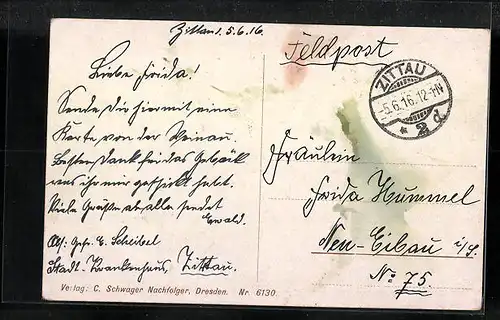 Zittau. 5.6.16.
Liebe Frida!
Sende Dir hiermit eine
Karte von der
Besten Dank für das
was ihr mir geschickt habt.
Viele Grüße an alle sendet
Ewald.
Abs: Gefr. E. Scheibel
Stadt-Krankenhaus, Zittau.
Verlag: C. Schwager Nachfolger, Dresden. Nr. 6130.
Feldpost
ZITTAU
-5.6.16.12-1N
* 2 d
Fräulein
Frida Hummel
Neu-Eibau i/S.
No 75